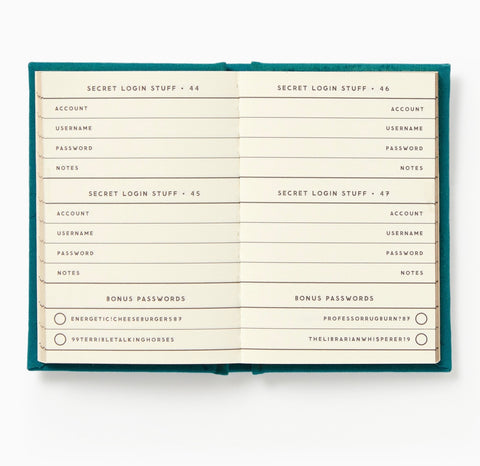 SECRET LOGIN STUFF • 44
ACCOUNT
USERNAME
PASSWORD
NOTES
SECRET LOGIN STUFF • 45
ACCOUNT
USERNAME
PASSWORD
NOTES
BONUS PASSWORDS
ENERGETIC!CHEESEBURGERS87
99TERRIBLETALKINGHORSES
SECRET LOGIN STUFF • 46
ACCOUNT
USERNAME
PASSWORD
NOTES
SECRET LOGIN STUFF • 47
ACCOUNT
USERNAME
PASSWORD
NOTES
BONUS PASSWORDS
PROFESSORRUGBURN?87
THELIBRARIANWHISPERER19